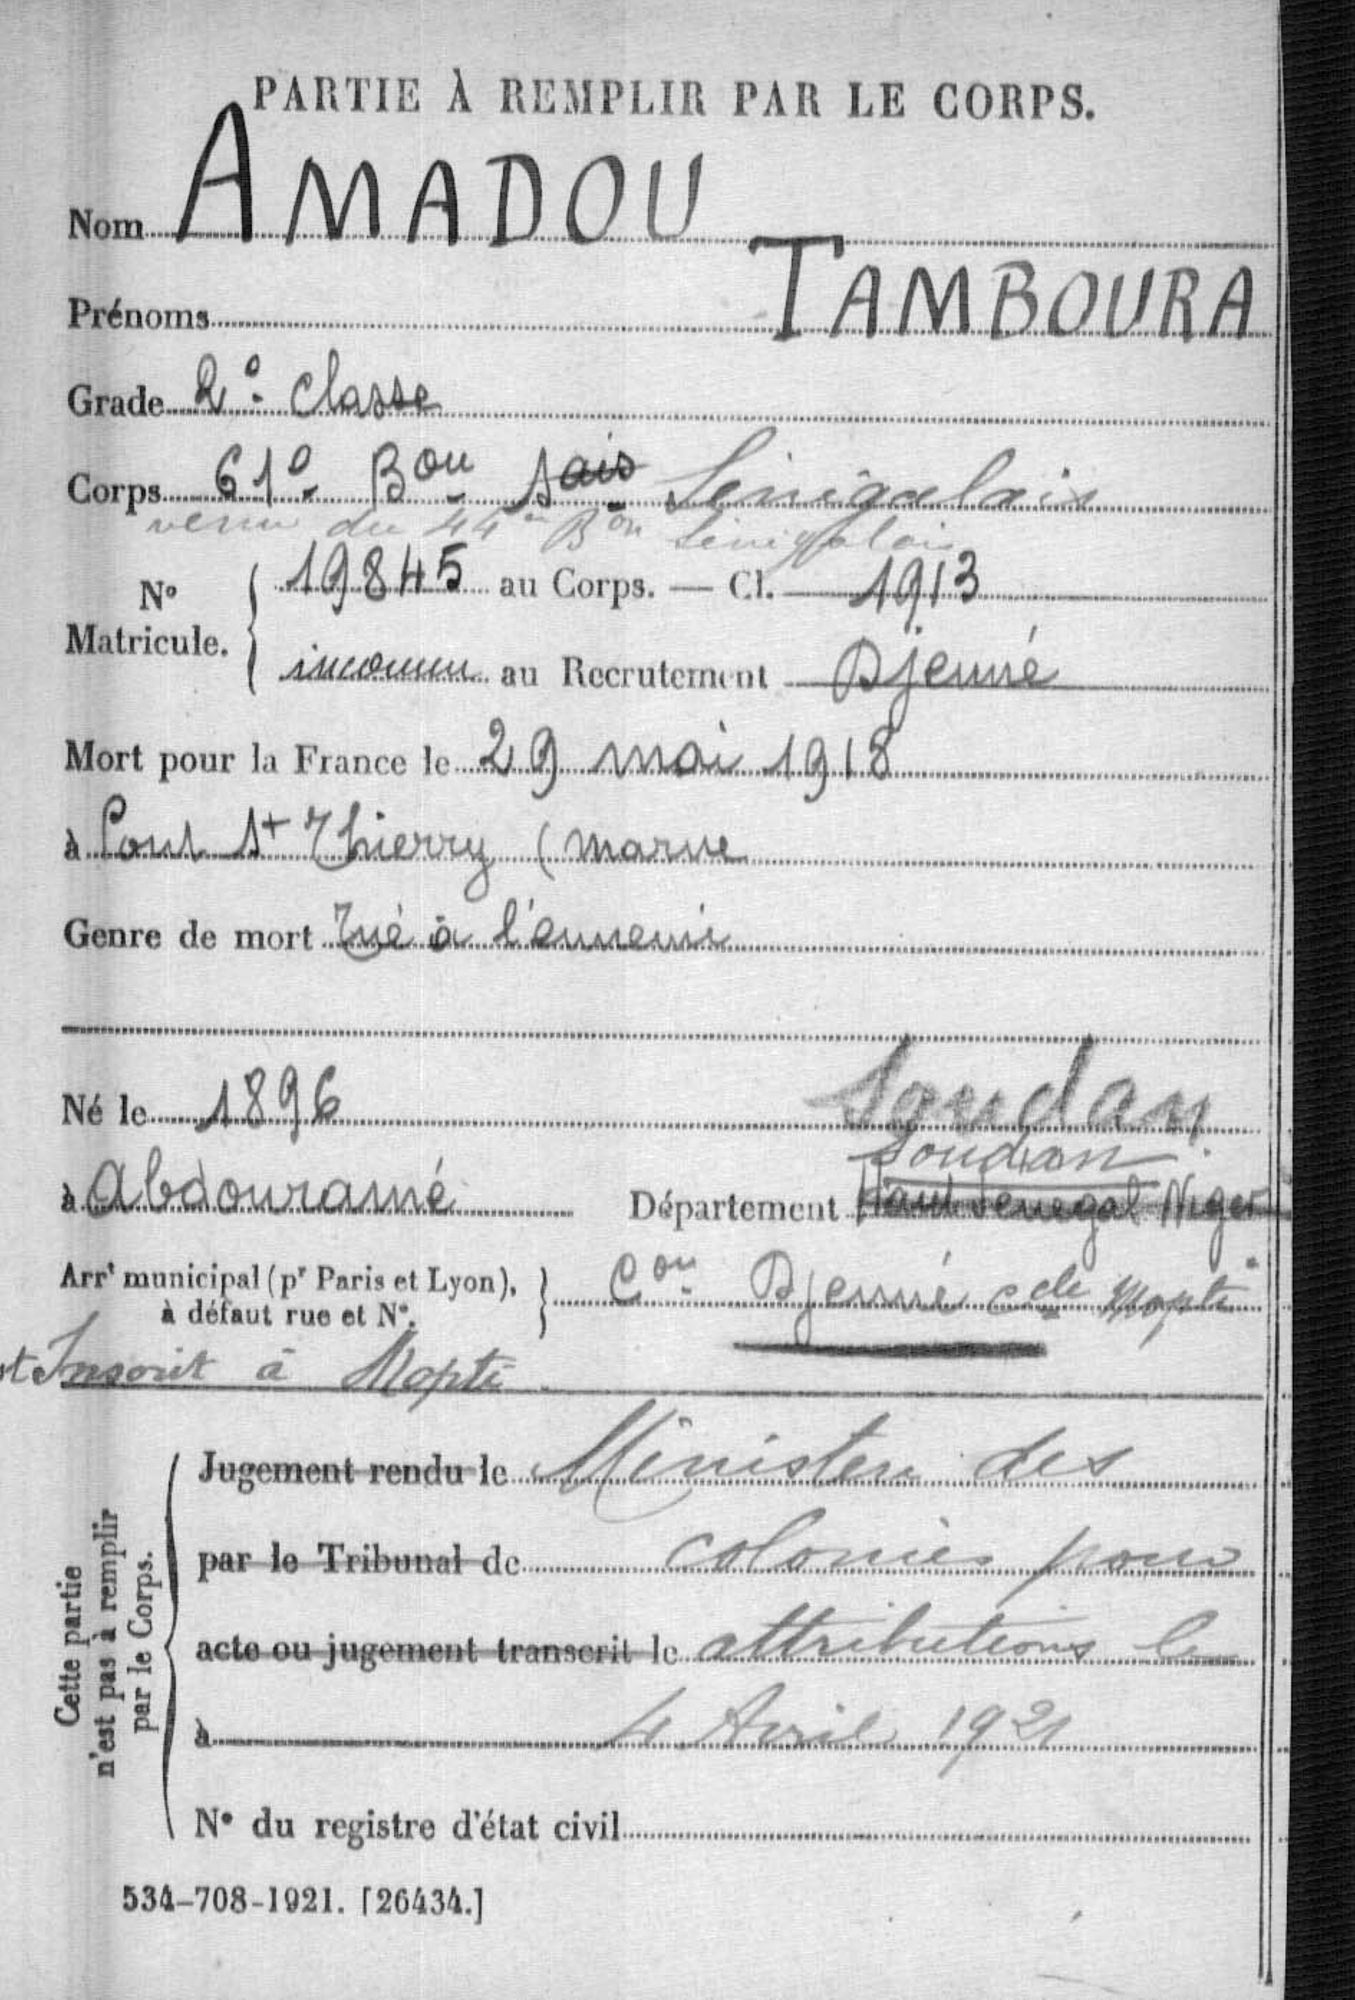 PARTIE À REMPLIR PAR LE CORPS.
Nom AMADOU
Prénoms TAMBOURA
Grade 2e. Classe
Corps 61e. Bon Sais Sénégalais
venu du 44e Bon Sénégalais
No Matricule. 19845 au Corps. — Cl. 1913
inconnu au Recrutement Djenné
Mort pour la France le 29 mai 1918
à Pont St Thierry (Marne
Genre de mort Tué à l'ennemi
Né le 1896 Soudan
Soudan
à Abdouramé Département Haut Sénégal Niger
Arrt municipal (pr Paris et Lyon), à défaut rue et No. Con Djenné cde Mopti
st Inscrit à Mopti
Cette partie n'est pas à remplir par le Corps.
Jugement rendu le Ministère des
par le Tribunal de colonies pour
acte ou jugement transcrit le attributions le
à 4 Avril 1921
No du registre d'état civil
534-708-1921. [26434.]